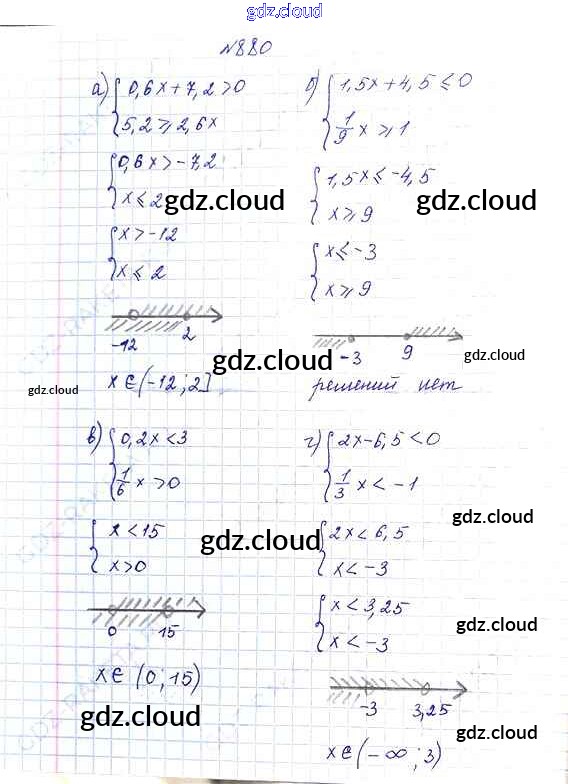 gdz.cloud
N880
а) { 0,6x+7,2>0
5,2⩾2,6x
{ 0,6x>-7,2
x⩽2
gdz.cloud
{ x>-12
x⩽2
-12 2
gdz.cloud
gdz.cloud
x∈(-12;2]
б) { 1,5x+4,5⩽0
1/9 x⩾1
{ 1,5x⩽-4,5
x⩾9
gdz.cloud
{ x⩽-3
x⩾9
-3 9
gdz.cloud
решений нет
в) { 0,2x<3
1/6 x>0
{ x<15
x>0
gdz.cloud
0 15
x∈(0;15)
gdz.cloud
г) { 2x-6,5<0
1/3 x<-1
gdz.cloud
{ 2x<6,5
x<-3
{ x<3,25
x<-3
gdz.cloud
-3 3,25
gdz.cloud
x∈(-∞;3)